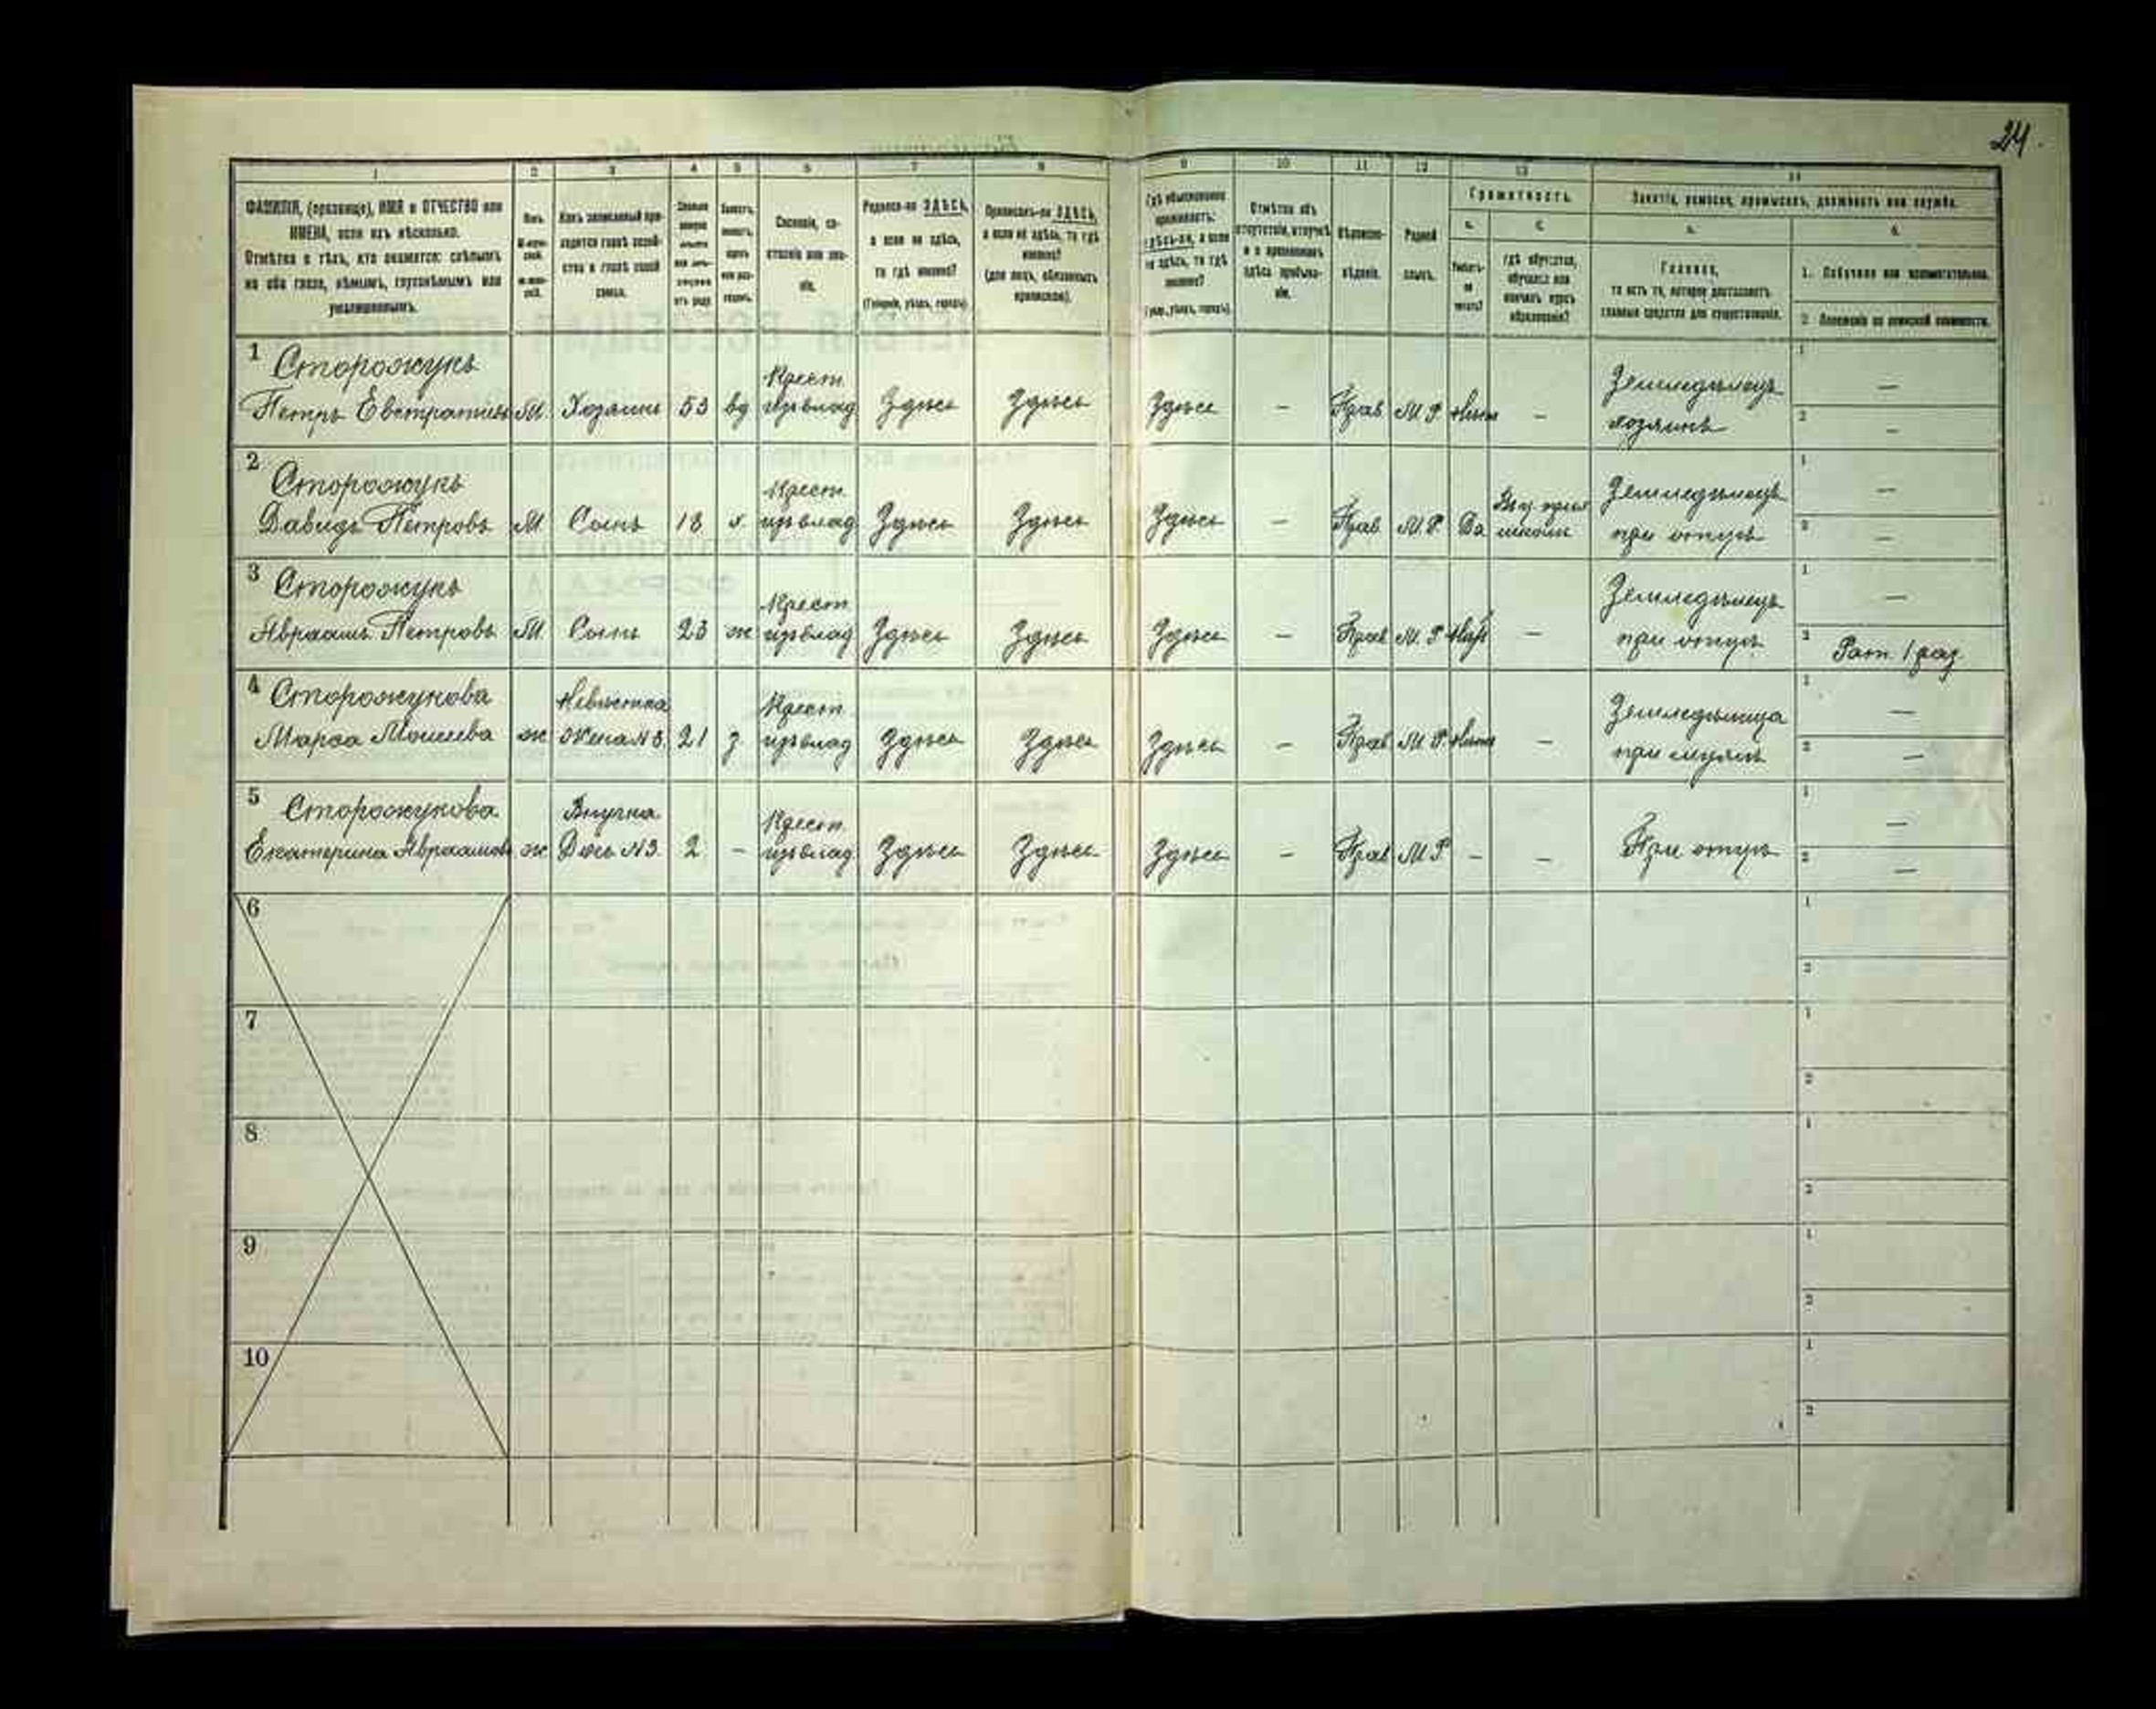 24.
1 2 3 4 5 6 7 8 9 10 11 12 13 14
ФАМИЛІЯ, (прозвище), ИМЯ и ОТЧЕСТВО или
ИМЕНА, если ихъ нѣсколько.
Отмѣтка о тѣхъ, кто окажется: слѣпымъ
на оба глаза, нѣмымъ, глухонѣмымъ или
умалишеннымъ.
Полъ.
Какъ записанный при-
ходится главѣ хозяй-
ства и главѣ своей
семьи.
Сословіе, со-
стояніе или зва-
ніе.
Родился-ли ЗДѢСЬ,
а если не здѣсь,
то гдѣ именно?
(Губернія, уѣздъ, городъ).
Приписанъ-ли ЗДѢСЬ,
а если не здѣсь, то гдѣ
именно?
(для лицъ, обязанныхъ
припискою).
Гдѣ обыкновенно
проживаетъ:
здѣсь-ли, а если
не здѣсь, то гдѣ
именно?
(губ., уѣздъ, городъ).
Отмѣтка объ
отсутствіи, отлучкѣ
и о временномъ
здѣсь пребыва-
ніи.
Вѣроиспо-
вѣданіе.
Родной
языкъ.
Грамотность.
а.
б.
Умѣетъ-
ли
читать?
гдѣ обучается,
обучался или
кончилъ курсъ
образованія?
Занятіе, ремесло, промыселъ, должность или служба.
а.
б.
Главное,
то есть то, которое доставляетъ
главныя средства для существованія.
1. Побочное или вспомогательное.
2. Положеніе по воинской повинности.
1 Сторожукъ Крест. Земледѣлецъ 1 —
Петръ Евстратіевъ М Хозяинъ 53 вд изъ влад Здѣсь Здѣсь Здѣсь — Прав М Р Нѣтъ — хозяинъ 2 —
2 Сторожукъ Крест. Земледѣлецъ 1 —
Давидъ Петровъ М Сынъ 18 х. изъ влад Здѣсь Здѣсь Здѣсь — Прав М.Р. Да школѣ при отцѣ 2 —
3 Сторожукъ Крест. Земледѣлецъ 1 —
Авраамъ Петровъ М Сынъ 23 ж изъ влад Здѣсь Здѣсь Здѣсь — Прав М.Р Нѣтъ — при отцѣ 2 Рат. 1 раз
4 Сторожукова Невѣстка Крест. Земледѣлица 1 —
Марѳа Моисеева ж Жена N3. 21 з. изъ влад Здѣсь Здѣсь Здѣсь — Прав М Р. Нѣтъ — при мужѣ 2 —
5 Сторожукова Внучка Крест. 1 —
Екатерина Авраамова ж Дочь N3. 2 — изъ влад Здѣсь Здѣсь Здѣсь — Прав М Р — — При отцѣ 2 —
6 1
2
7 1
2
8 1
2
9 1
2
10 1
2